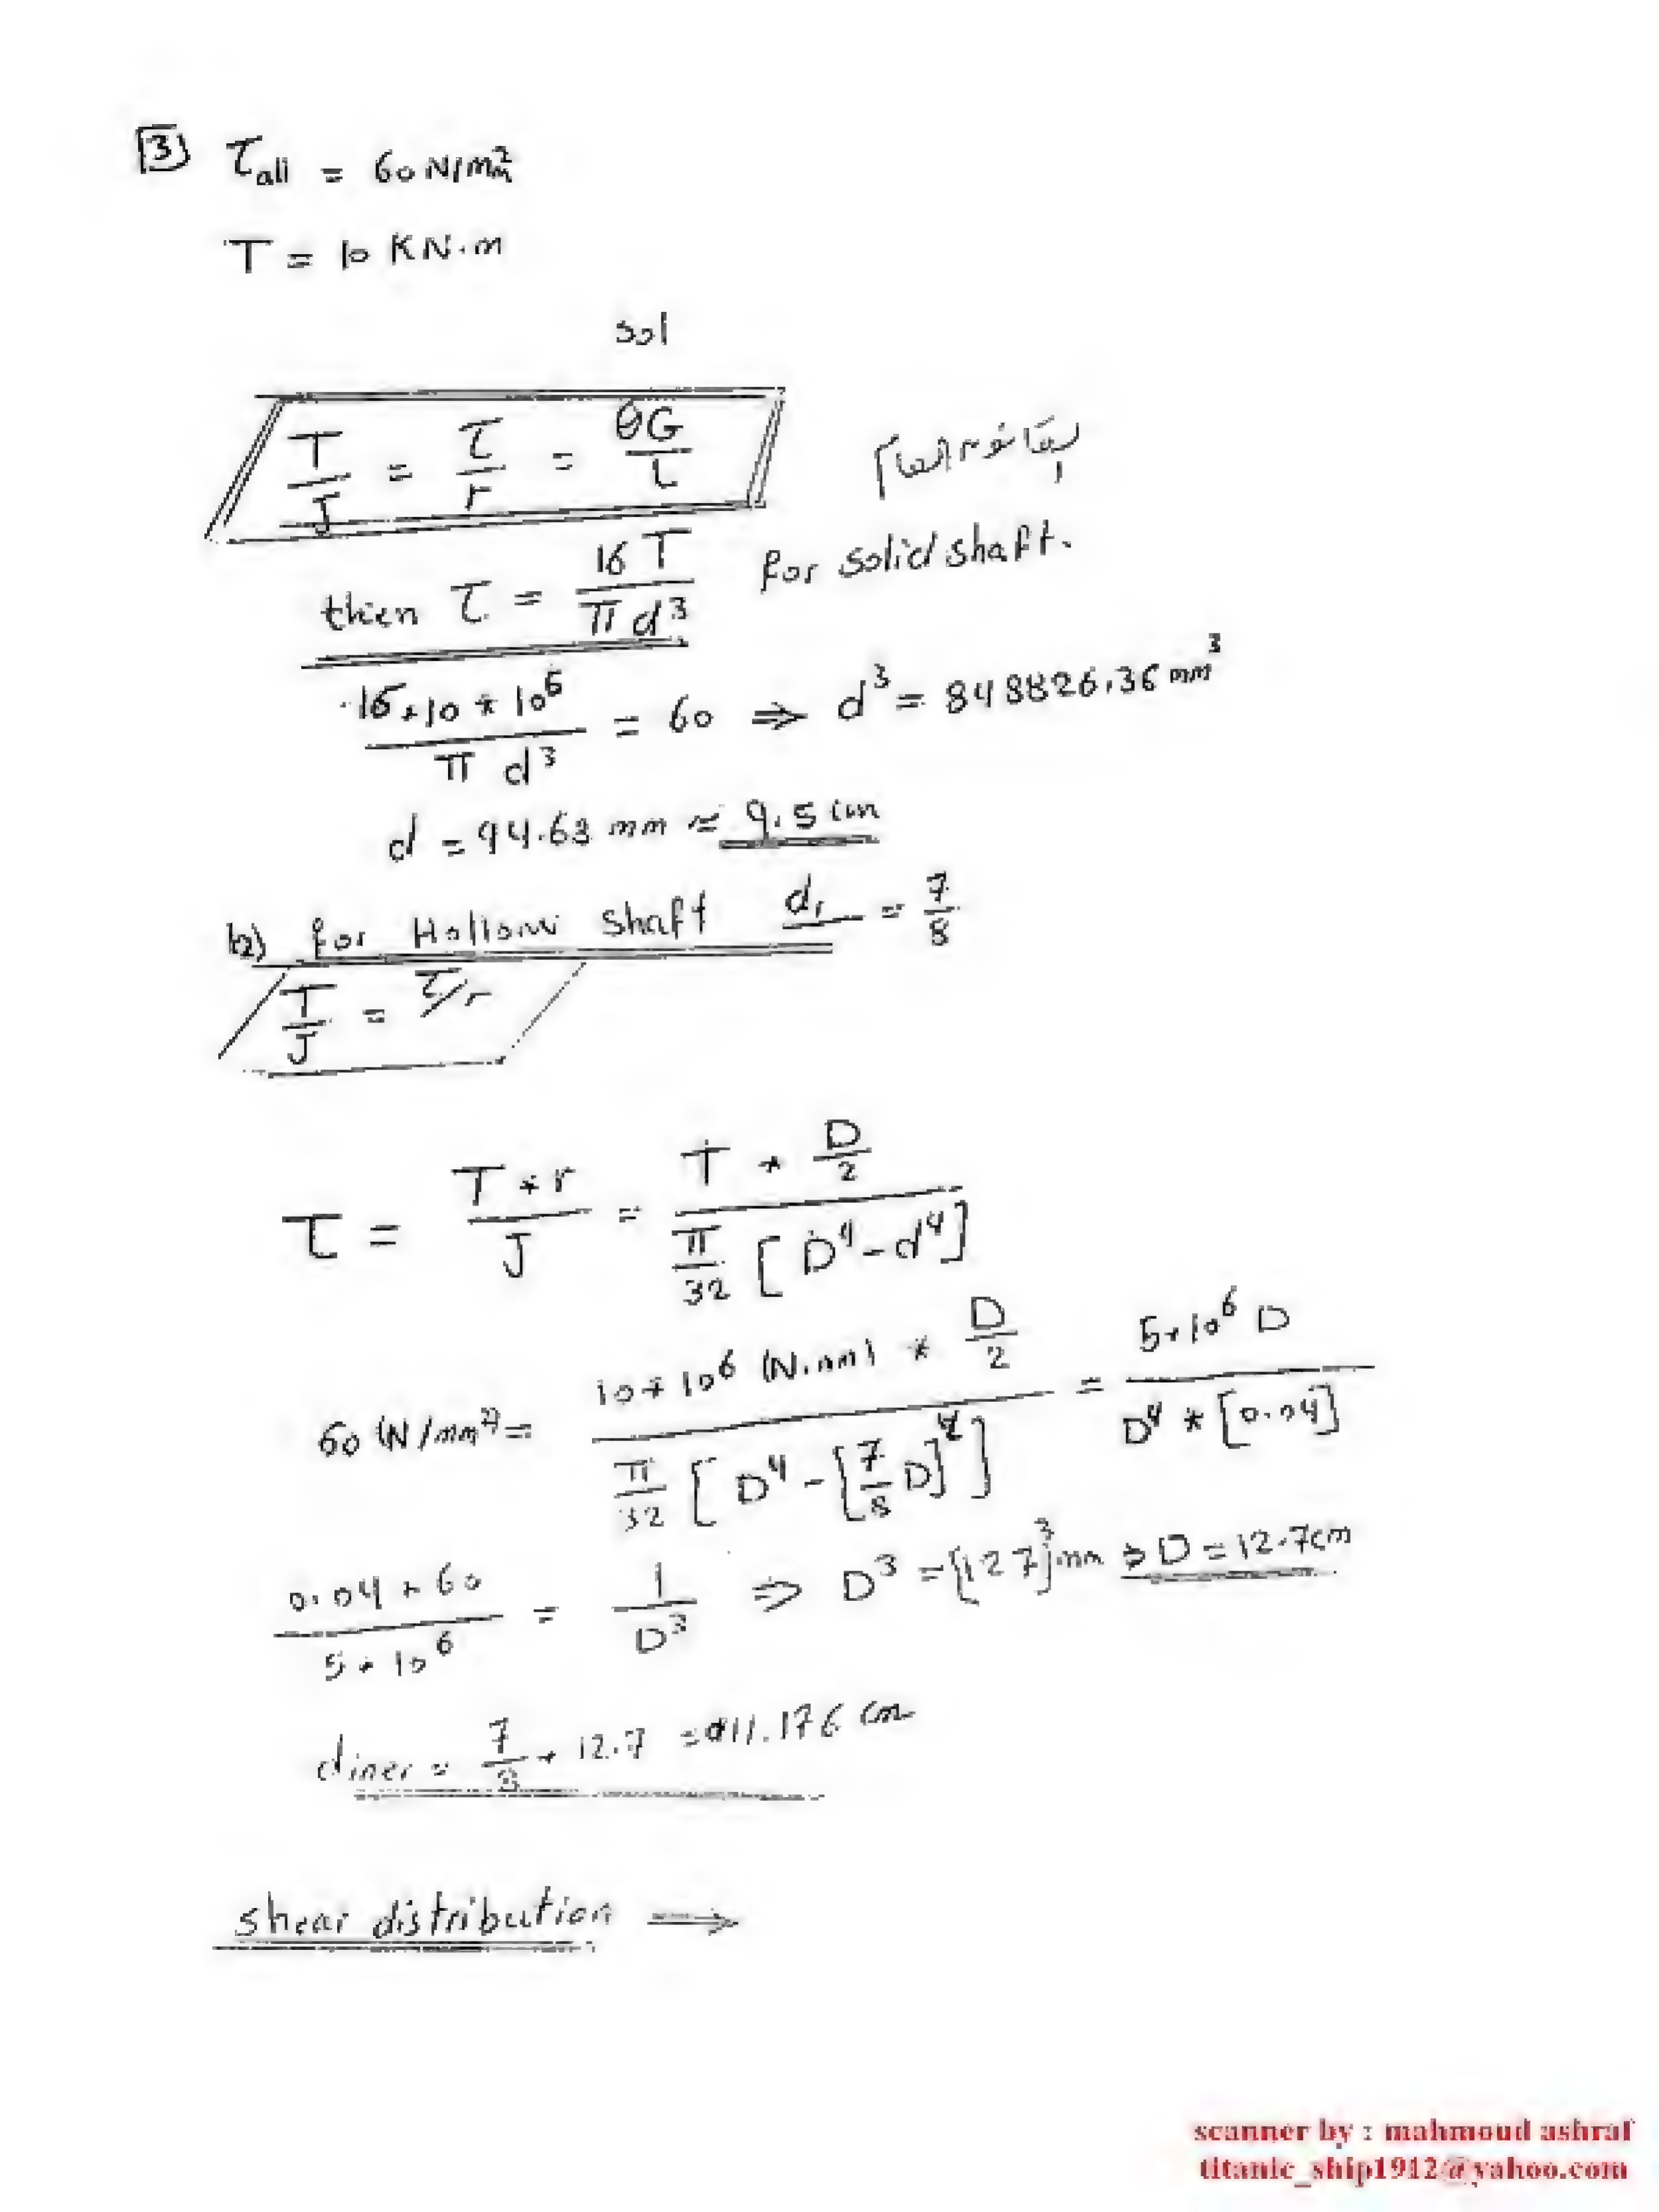 3 τall = 60 N/mm²
T = 10 KN.m
sol
T/J = τ/r = θG/L بقانون العام
then τ = 16 T / π d³ for solid shaft.
16*10*10⁶ / π d³ = 60 ⇒ d³ = 848826.36 mm³
d = 94.63 mm ≈ 9.5 cm
b) for Hollow shaft d, = 7/8
T/J = τ/r
τ = T*r / J = T * D/2 / π/32 [D⁴-d⁴]
60 (N/mm²) = 10*10⁶ (N.mm) * D/2 / π/32 [D⁴-[7/8 D]⁴] = 5*10⁶ D / D⁴ * [0.04]
0.04 * 60 / 5*10⁶ = 1/D³ ⇒ D³ = [127]³ mm ⇒ D = 12.7 cm
diner = 7/8 * 12.7 = 11.176 cm
shear distribution ⟶
scanner by : mahmoud ashraf
titanic_ship1912@yahoo.com